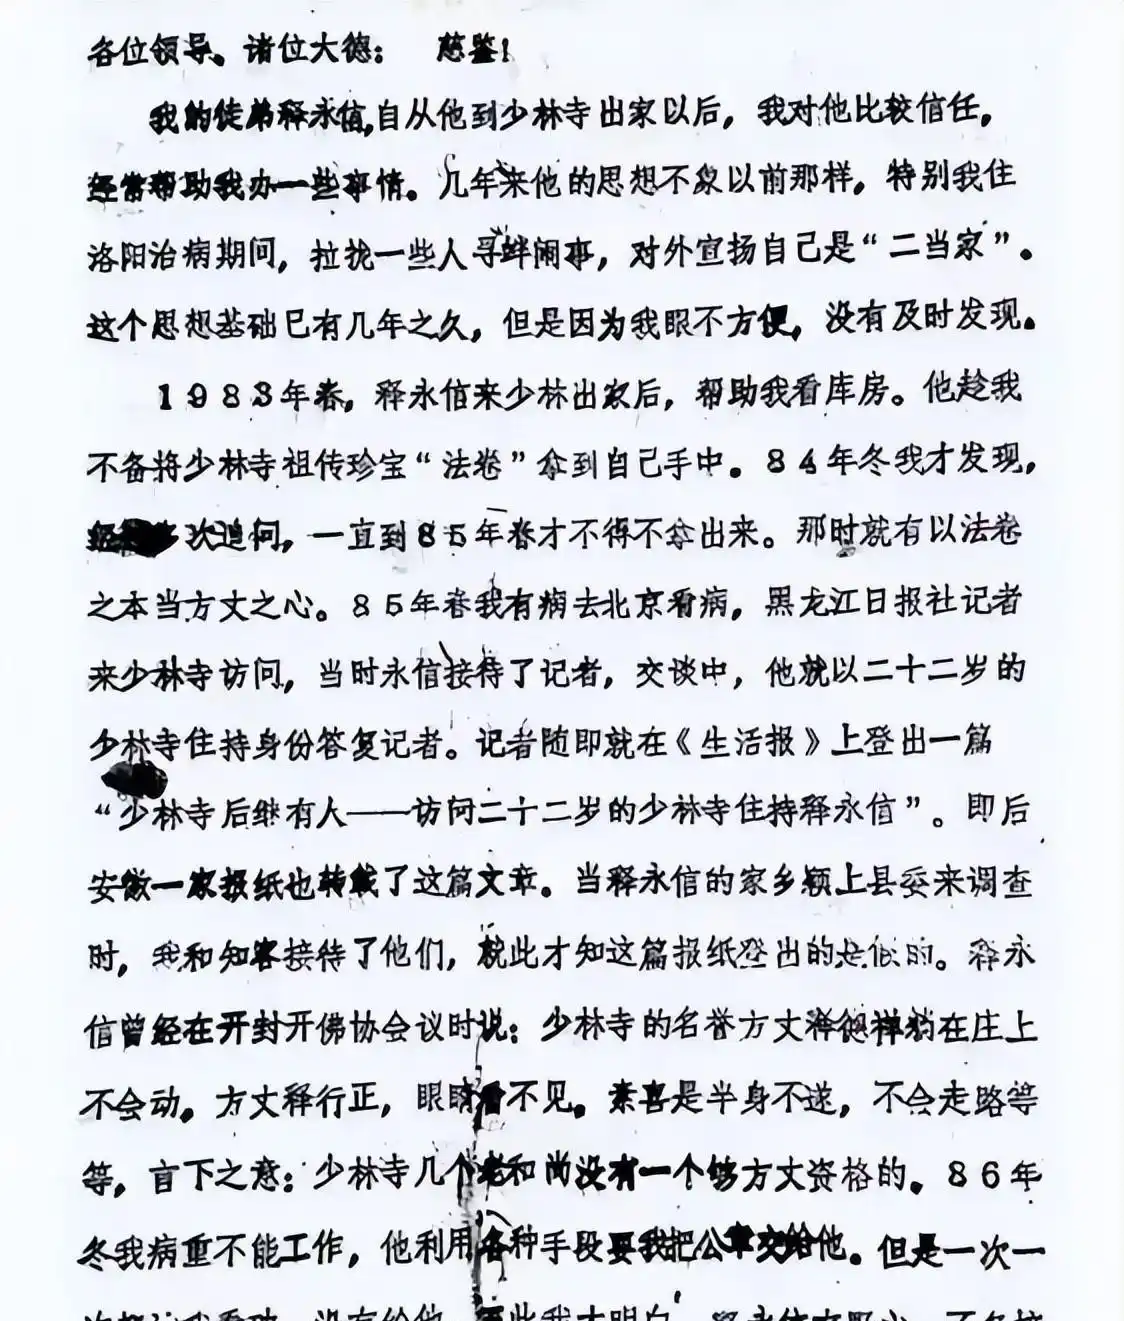 各位领导。诸位大德： 慈鉴！
我的徒弟释永信，自从他到少林寺出家以后，我对他比较信任，
经常帮助我办一些事情。几年来他的思想不象以前那样，特别我住
洛阳治病期间，拉拢一些人寻衅闹事，对外宣扬自己是“二当家”。
这个思想基础已有几年之久，但是因为我眼不方便，没有及时发现。
1983年春，释永信来少林出家后，帮助我看库房。他趁我
不备将少林寺祖传珍宝“法卷”拿到自己手中。84年冬我才发现，
次追问，一直到85年春才不得不拿出来。那时就有以法卷
之本当方丈之心。85年春我有病去北京看病，黑龙江日报社记者
来少林寺访问，当时永信接待了记者，交谈中，他就以二十二岁的
少林寺住持身份答复记者。记者随即就在《生活报》上登出一篇
“少林寺后继有人——访问二十二岁的少林寺住持释永信”。即后
安徽一家报纸也转载了这篇文章。当释永信的家乡颖上县委来调查
时，我和知客接待了他们，就此才知这篇报纸登出的是假的。释永
信曾经在开封开佛协会议时说：少林寺的名誉方丈释德禅躺在庄上
不会动。方丈释行正，眼睛看不见。素喜是半身不遂，不会走路等
等，言下之意：少林寺几个老和尚没有一个够方丈资格的。86年
冬我病重不能工作，他利用各种手段要我把公章交给他。但是一次一